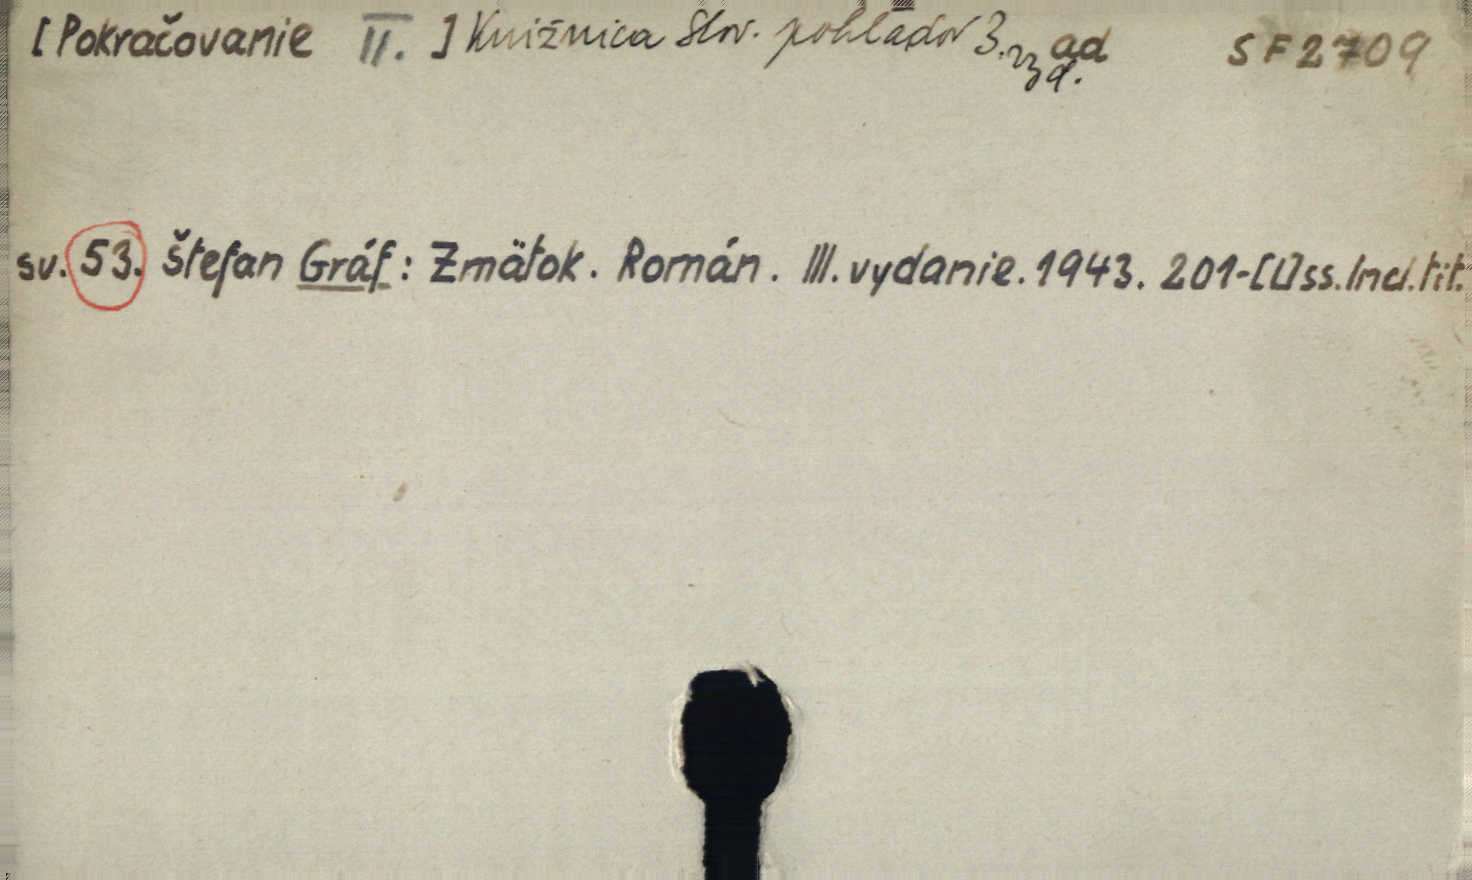 [Pokračovanie II.] Knižnica Slov. pohľadov 3. vyd. ad SF2709
sv. 53. Štefan Gráf: Zmätok. Román. III. vydanie. 1943. 201-[1]ss. Incl. tit.